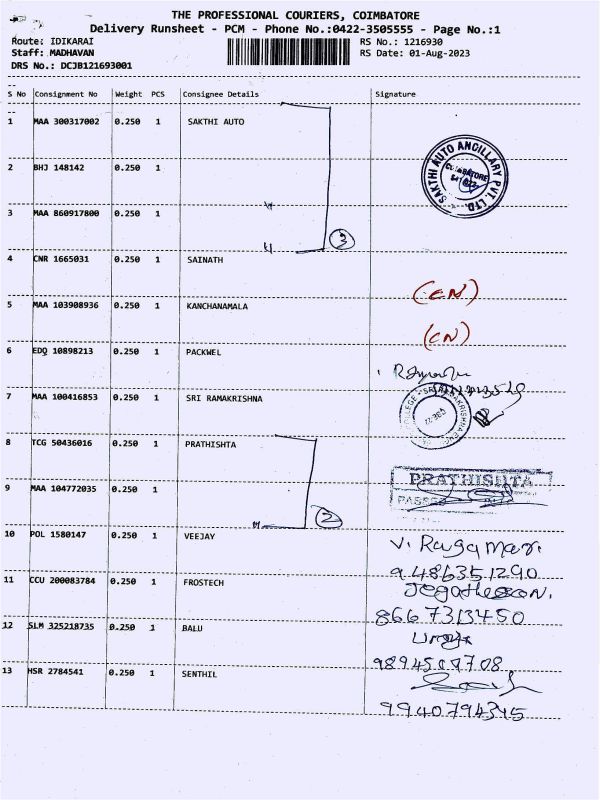 THE PROFESSIONAL COURIERS, COIMBATORE
Delivery Runsheet - PCM - Phone No.:0422-3505555 - Page No.:1
Route: IDIKARAI RS No.: 1216930
Staff: MADHAVAN RS Date: 01-Aug-2023
DRS No.: DCJB121693001
S No Consignment No Weight PCS Consignee Details Signature
1 MAA 300317002 0.250 1 SAKTHI AUTO
SAKTHI AUTO ANCILLARY PVT. LTD.
COIMBATORE
2 BHJ 148142 0.250 1
3 MAA 860917800 0.250 1
3
4 CNR 1665031 0.250 1 SAINATH
(CN)
5 MAA 103908936 0.250 1 KANCHANAMALA
(CN)
6 EDQ 10898213 0.250 1 PACKWEL
7 MAA 100416853 0.250 1 SRI RAMAKRISHNA
8 TCG 50436016 0.250 1 PRATHISHTA
PRATHISHTA
PASSED
9 MAA 104772035 0.250 1
2
10 POL 1580147 0.250 1 VEEJAY
V. Ragamani.
9486351290
11 CCU 200083784 0.250 1 FROSTECH
8667313450
12 SLM 325218735 0.250 1 BALU
13 HSR 2784541 0.250 1 SENTHIL
9940794345